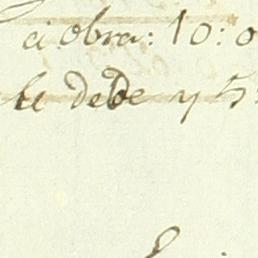 a obra: 10: 0
le debe y 5: